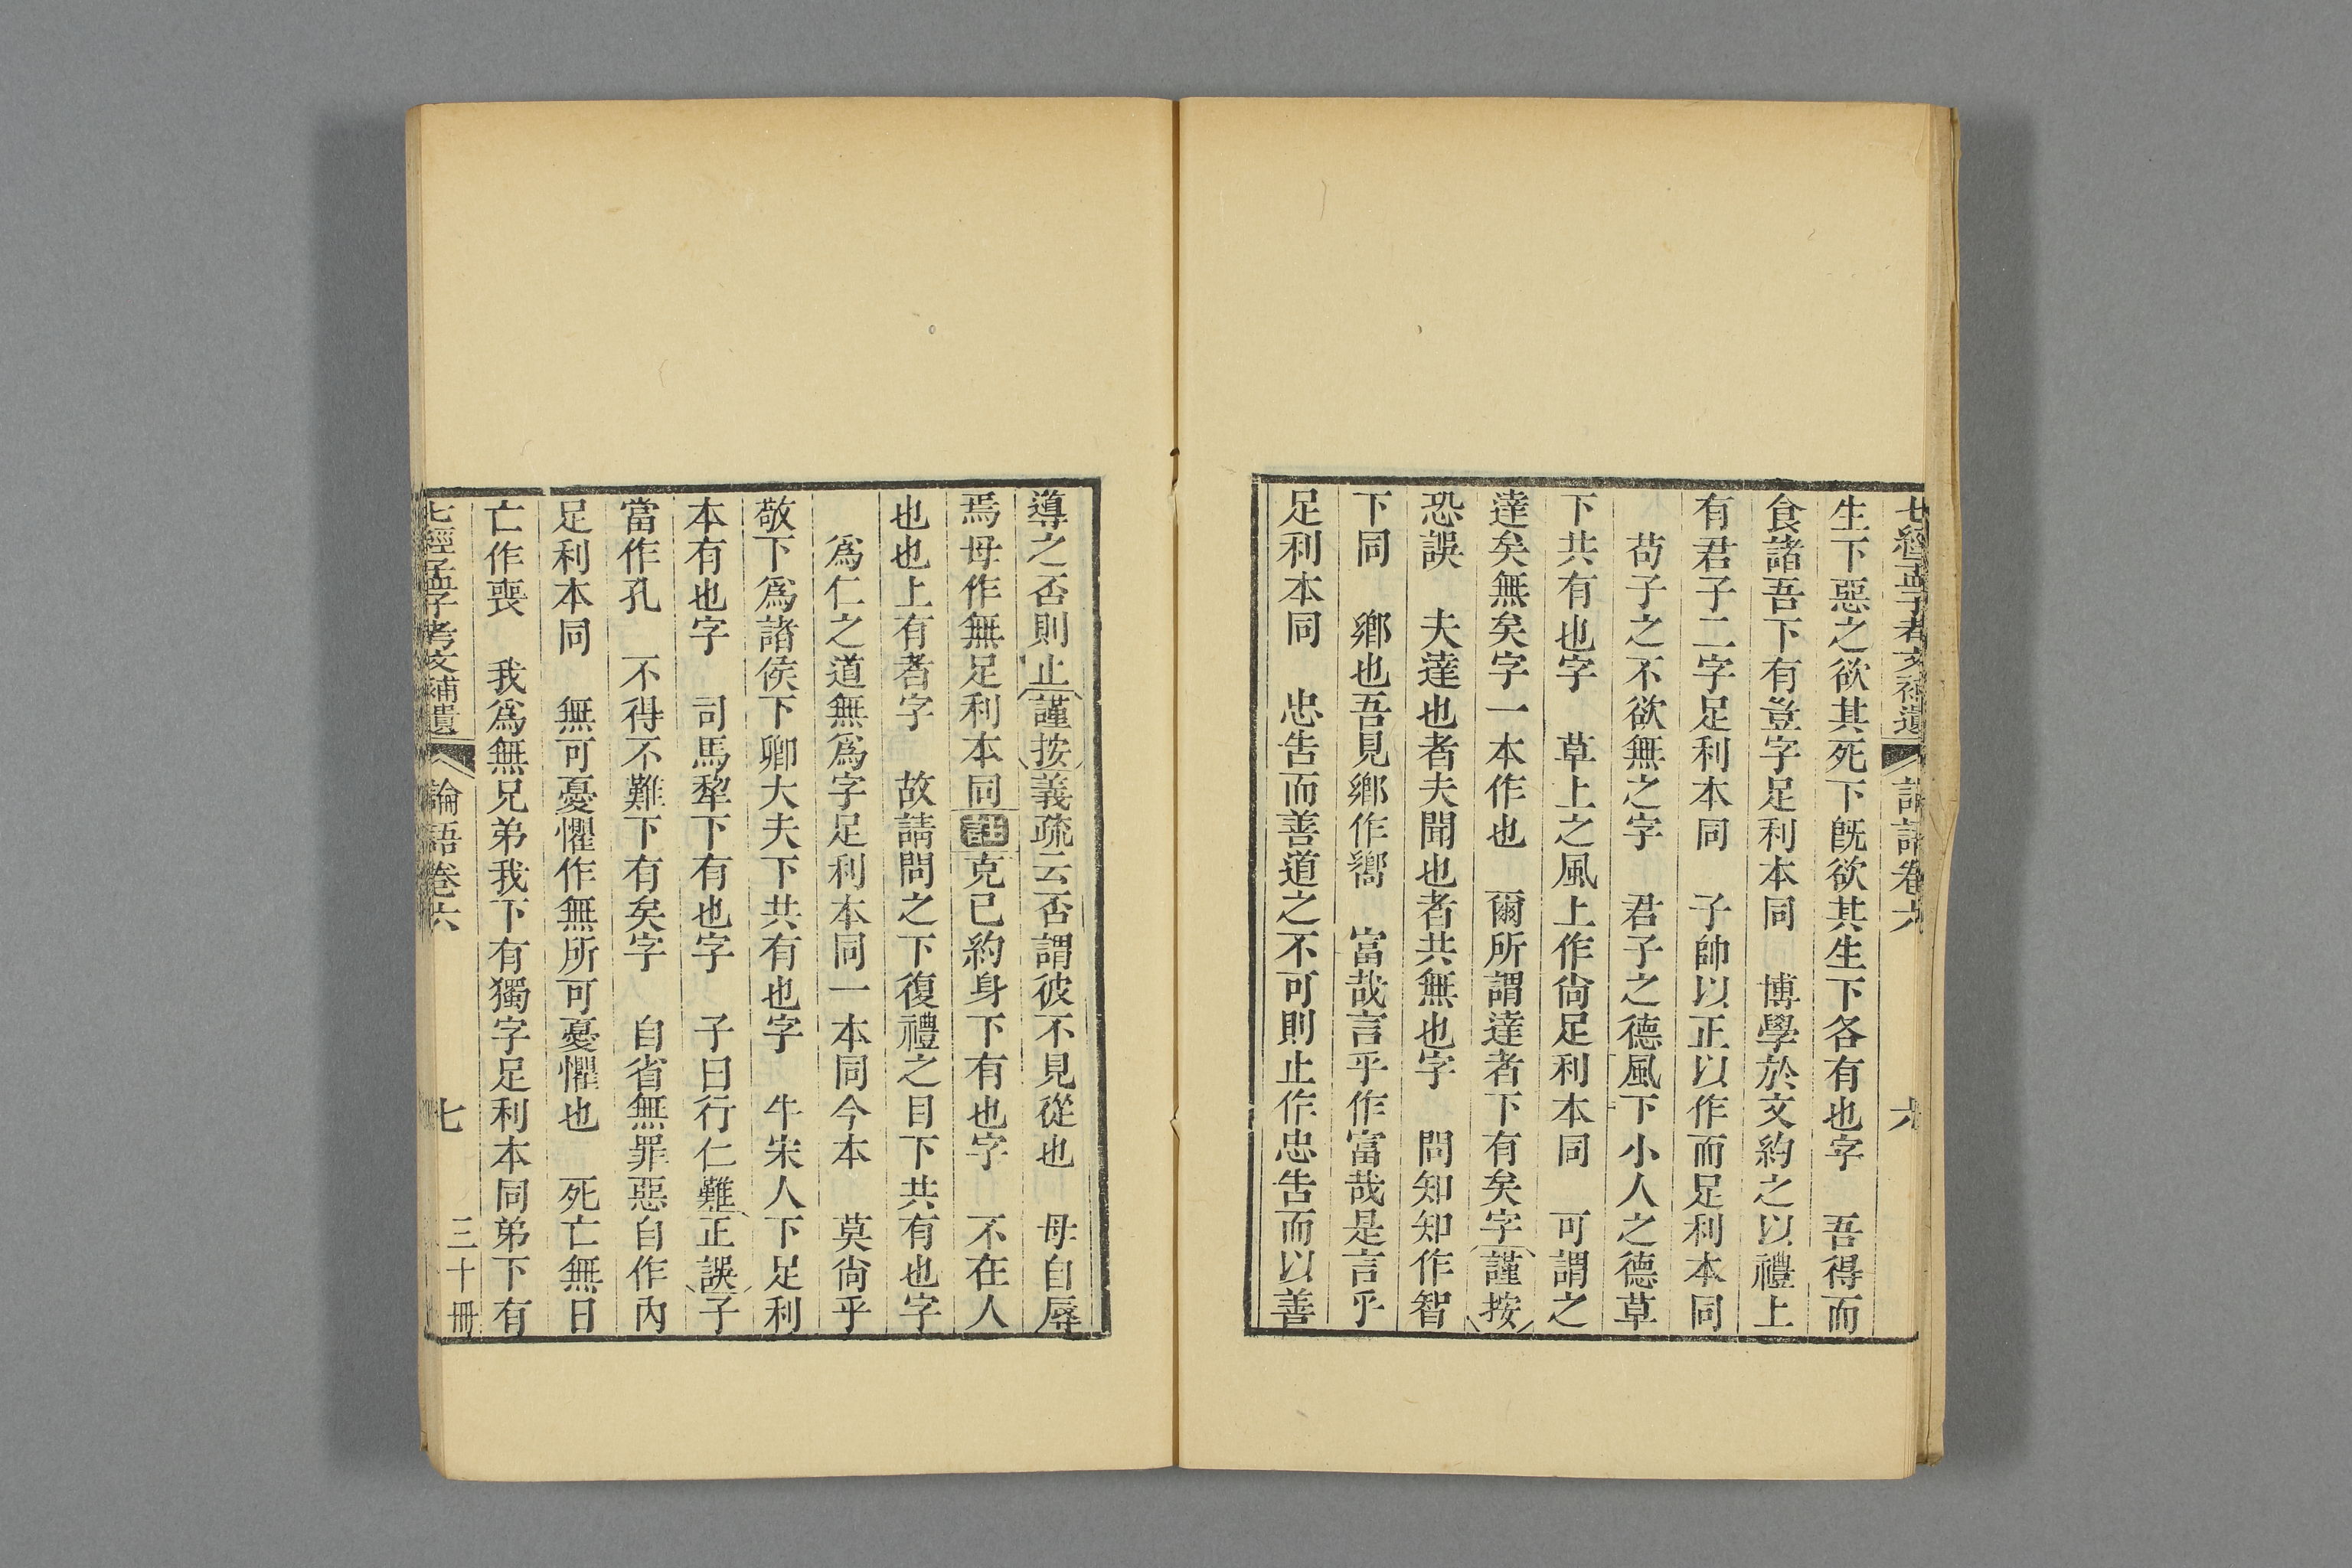 七經孟子考文補遺 論語卷六 六
生下惡之欲其死下旣欲其生下各有也字 吾得而
食諸吾下有豈字足利本同 博學於文約之以禮上
有君子二字足利本同 子帥以正以作而足利本同
苟子之不欲無之字 君子之德風下小人之德草
下共有也字 草上之風上作尙足利本同 可謂之
達矣無矣字一本作也 爾所謂達者下有矣字謹按
恐誤 夫達也者夫聞也者共無也字 問知知作智
下同 鄉也吾見鄉作嚮 富哉言乎作富哉是言乎
足利本同 忠告而善道之不可則止作忠告而以善
導之否則止謹按義疏云否謂彼不見從也 毋自辱
焉毋作無足利本同註克己約身下有也字 不在人
也也上有者字 故請問之下復禮之目下共有也字
爲仁之道無爲字足利本同一本同今本 莫尙乎
敬下爲諸侯下卿大夫下共有也字 牛宋人下足利
本有也字 司馬犂下有也字 子曰行仁難正誤子
當作孔 不得不難下有矣字 自省無罪惡自作內
足利本同 無可憂懼作無所可憂懼也 死亡無日
亡作喪 我爲無兄弟我下有獨字足利本同弟下有
七經孟子考文補遺 論語卷六 七 三十冊